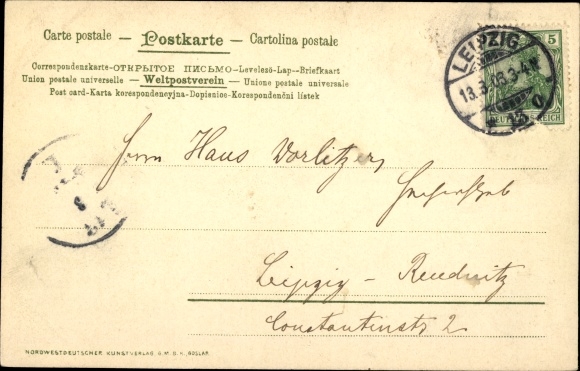 Carte postale – Postkarte – Cartolina postale
Correspondenzkarte–ОТКРЫТОЕ ПИСЬМО–Levelezö-Lap–Briefkaart
Union postale universelle – Weltpostverein – Unione postale universale
Post card-Karta korespondencyjna-Dopisnice-Korespondenčni listek
LEIPZIG
13.3.06.3-4.N.
5
DEUTSCHES REICH
Herrn Hans Vorlitzer,
Leipzig – Reudnitz
Constantinstr 2
NORDWESTDEUTSCHER KUNSTVERLAG G.M.B.H., GOSLAR